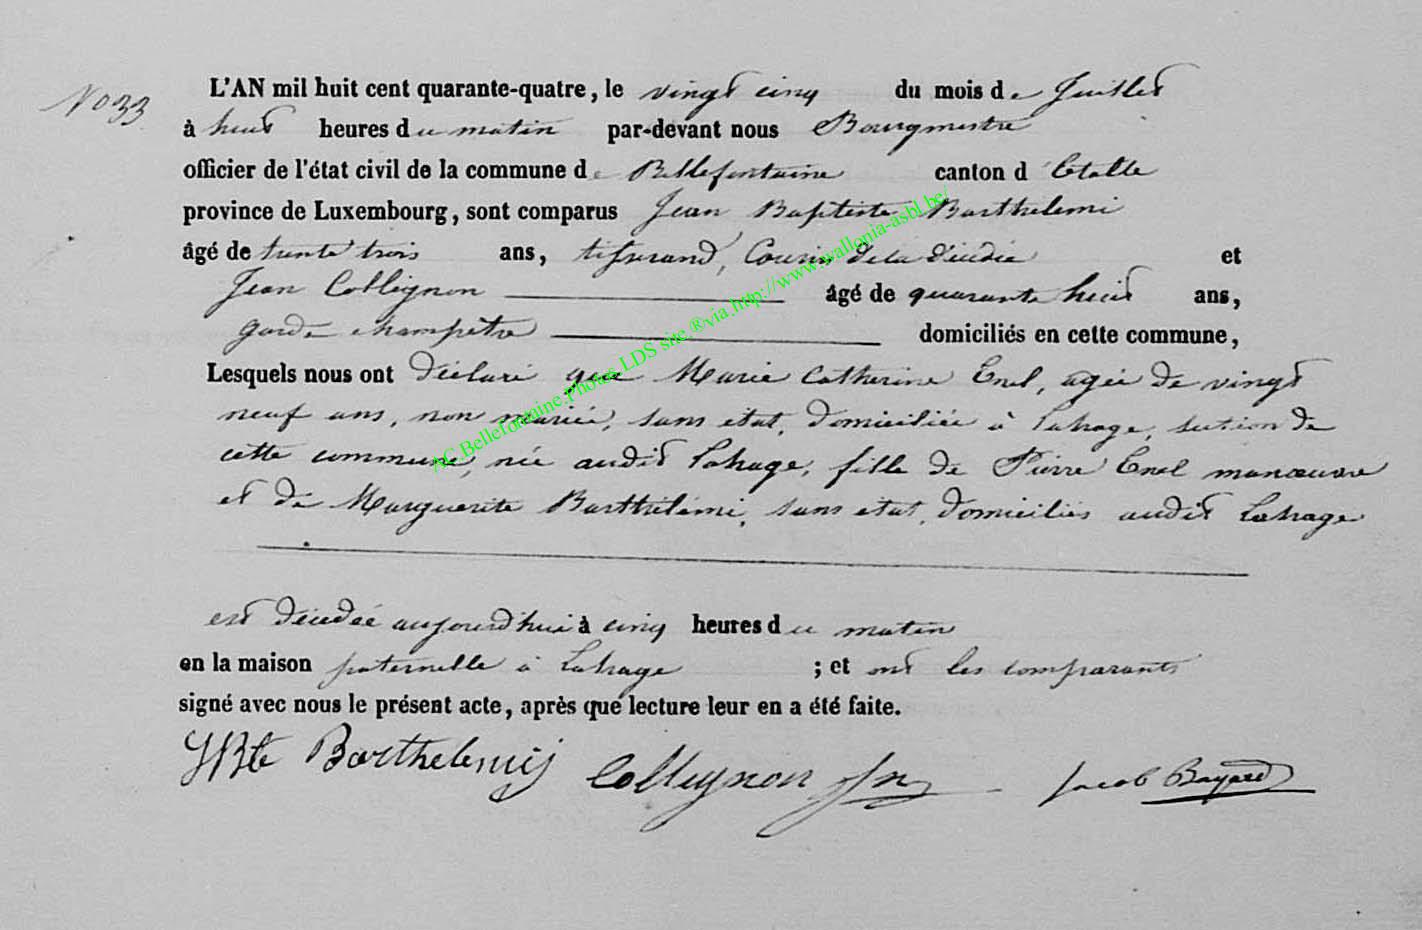 No 33
L'AN mil huit cent quarante-quatre, le vingt cinq du mois de Juillet
à huit heures du matin par-devant nous Bourgmestre
officier de l'état civil de la commune de Bellefontaine canton d'Etalle
province de Luxembourg, sont comparus Jean Baptiste Barthelemi
âgé de trente trois ans, tisserand, Cousin de la décédée et
Jean Collignon âgé de quarante huit ans,
garde champêtre domiciliés en cette commune,
Lesquels nous ont déclaré que Marie Catherine Enel, agée de vingt
neuf ans, non mariée, sans état, domiciliée à Lahage, section de
cette commune, née audit Lahage, fille de Pierre Enel manœuvre
et de Marguerite Barthélémi, sans état, domiciliés audit Lahage
est décédée aujourd'hui à cinq heures du matin
en la maison paternelle à Lahage ; et ont les comparants
signé avec nous le présent acte, après que lecture leur en a été faite.
JBte Barthelemij Collignon Jn Jacob Bayard
AC.Bellefontaine.Photos.LDS site.®via.http://www.wallonia-asbl.be/